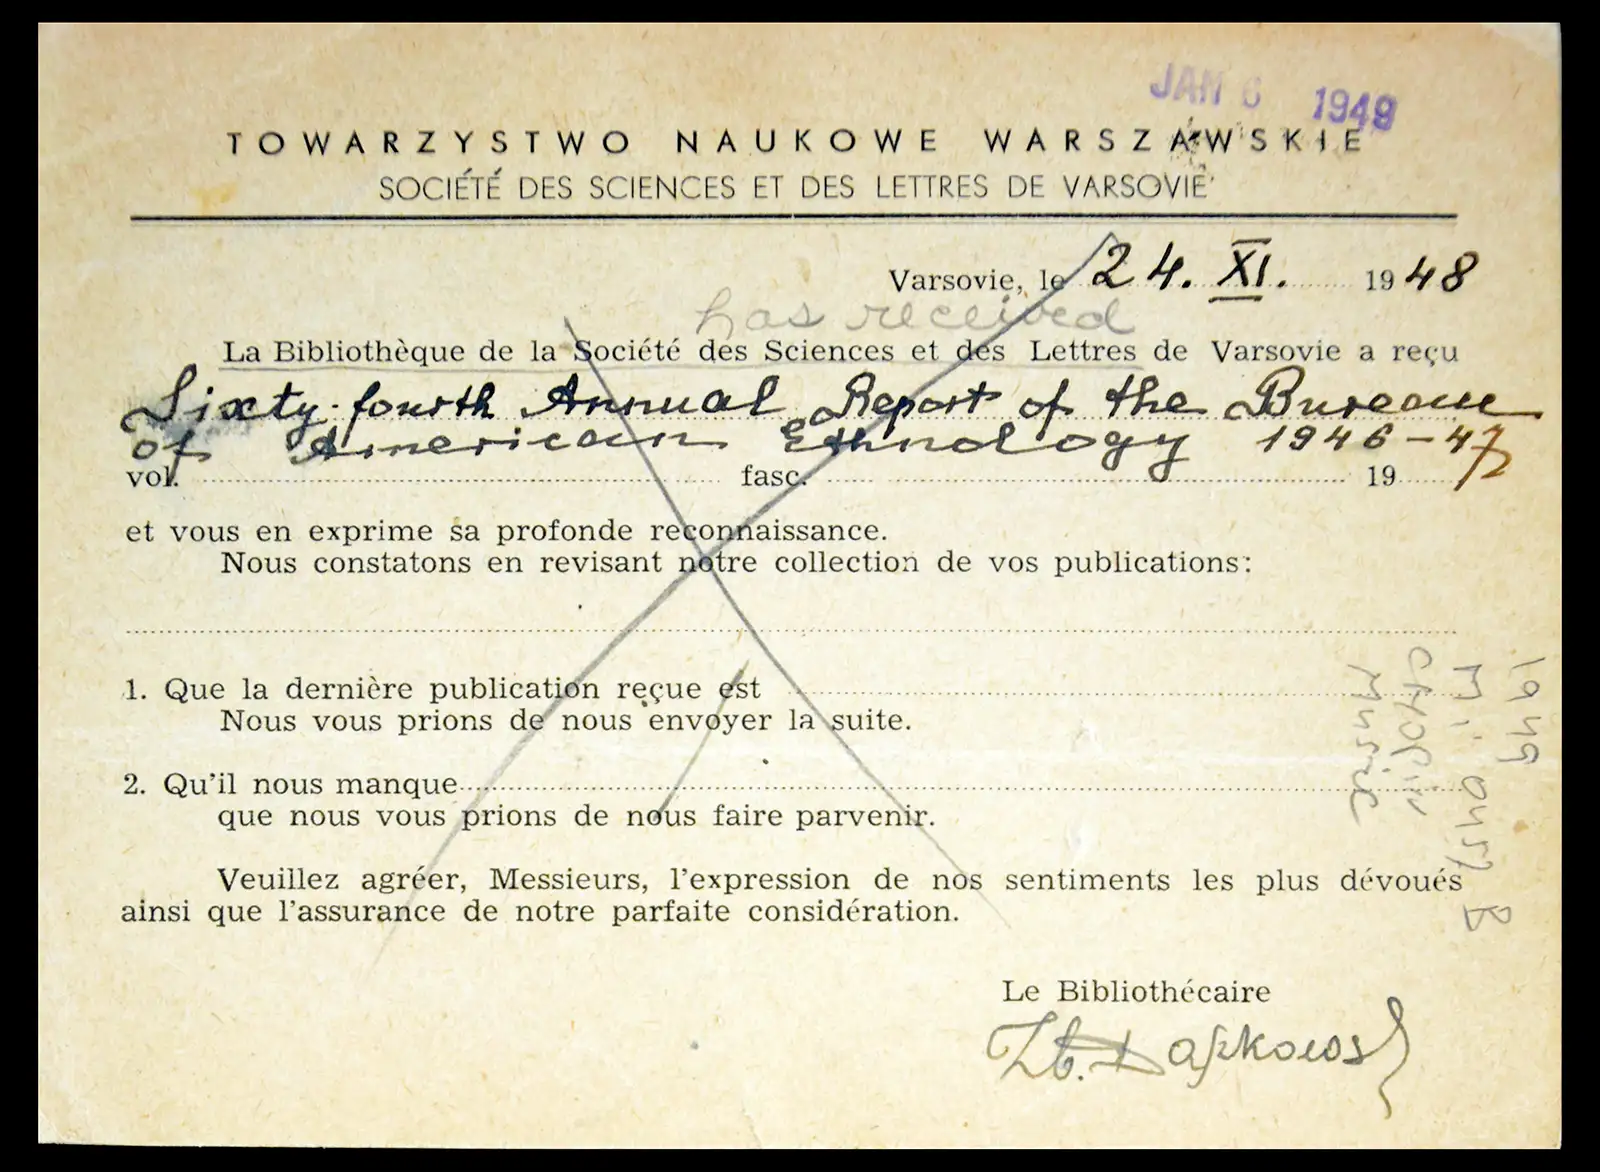 JAN 6 1949
TOWARZYSTWO NAUKOWE WARSZAWSKIE
SOCIÉTÉ DES SCIENCES ET DES LETTRES DE VARSOVIE
Varsovie, le 24. XI. 1948
has received
La Bibliothèque de la Société des Sciences et des Lettres de Varsovie a reçu
Sixty-fourth Annual Report of the Bureau
of American Ethnology 1946-47
vol. fasc. 19
et vous en exprime sa profonde reconnaissance.
Nous constatons en revisant notre collection de vos publications:
1. Que la dernière publication reçue est
Nous vous prions de nous envoyer la suite.
2. Qu'il nous manque
que nous vous prions de nous faire parvenir.
Veuillez agréer, Messieurs, l'expression de nos sentiments les plus dévoués
ainsi que l'assurance de notre parfaite considération.
Le Bibliothécaire